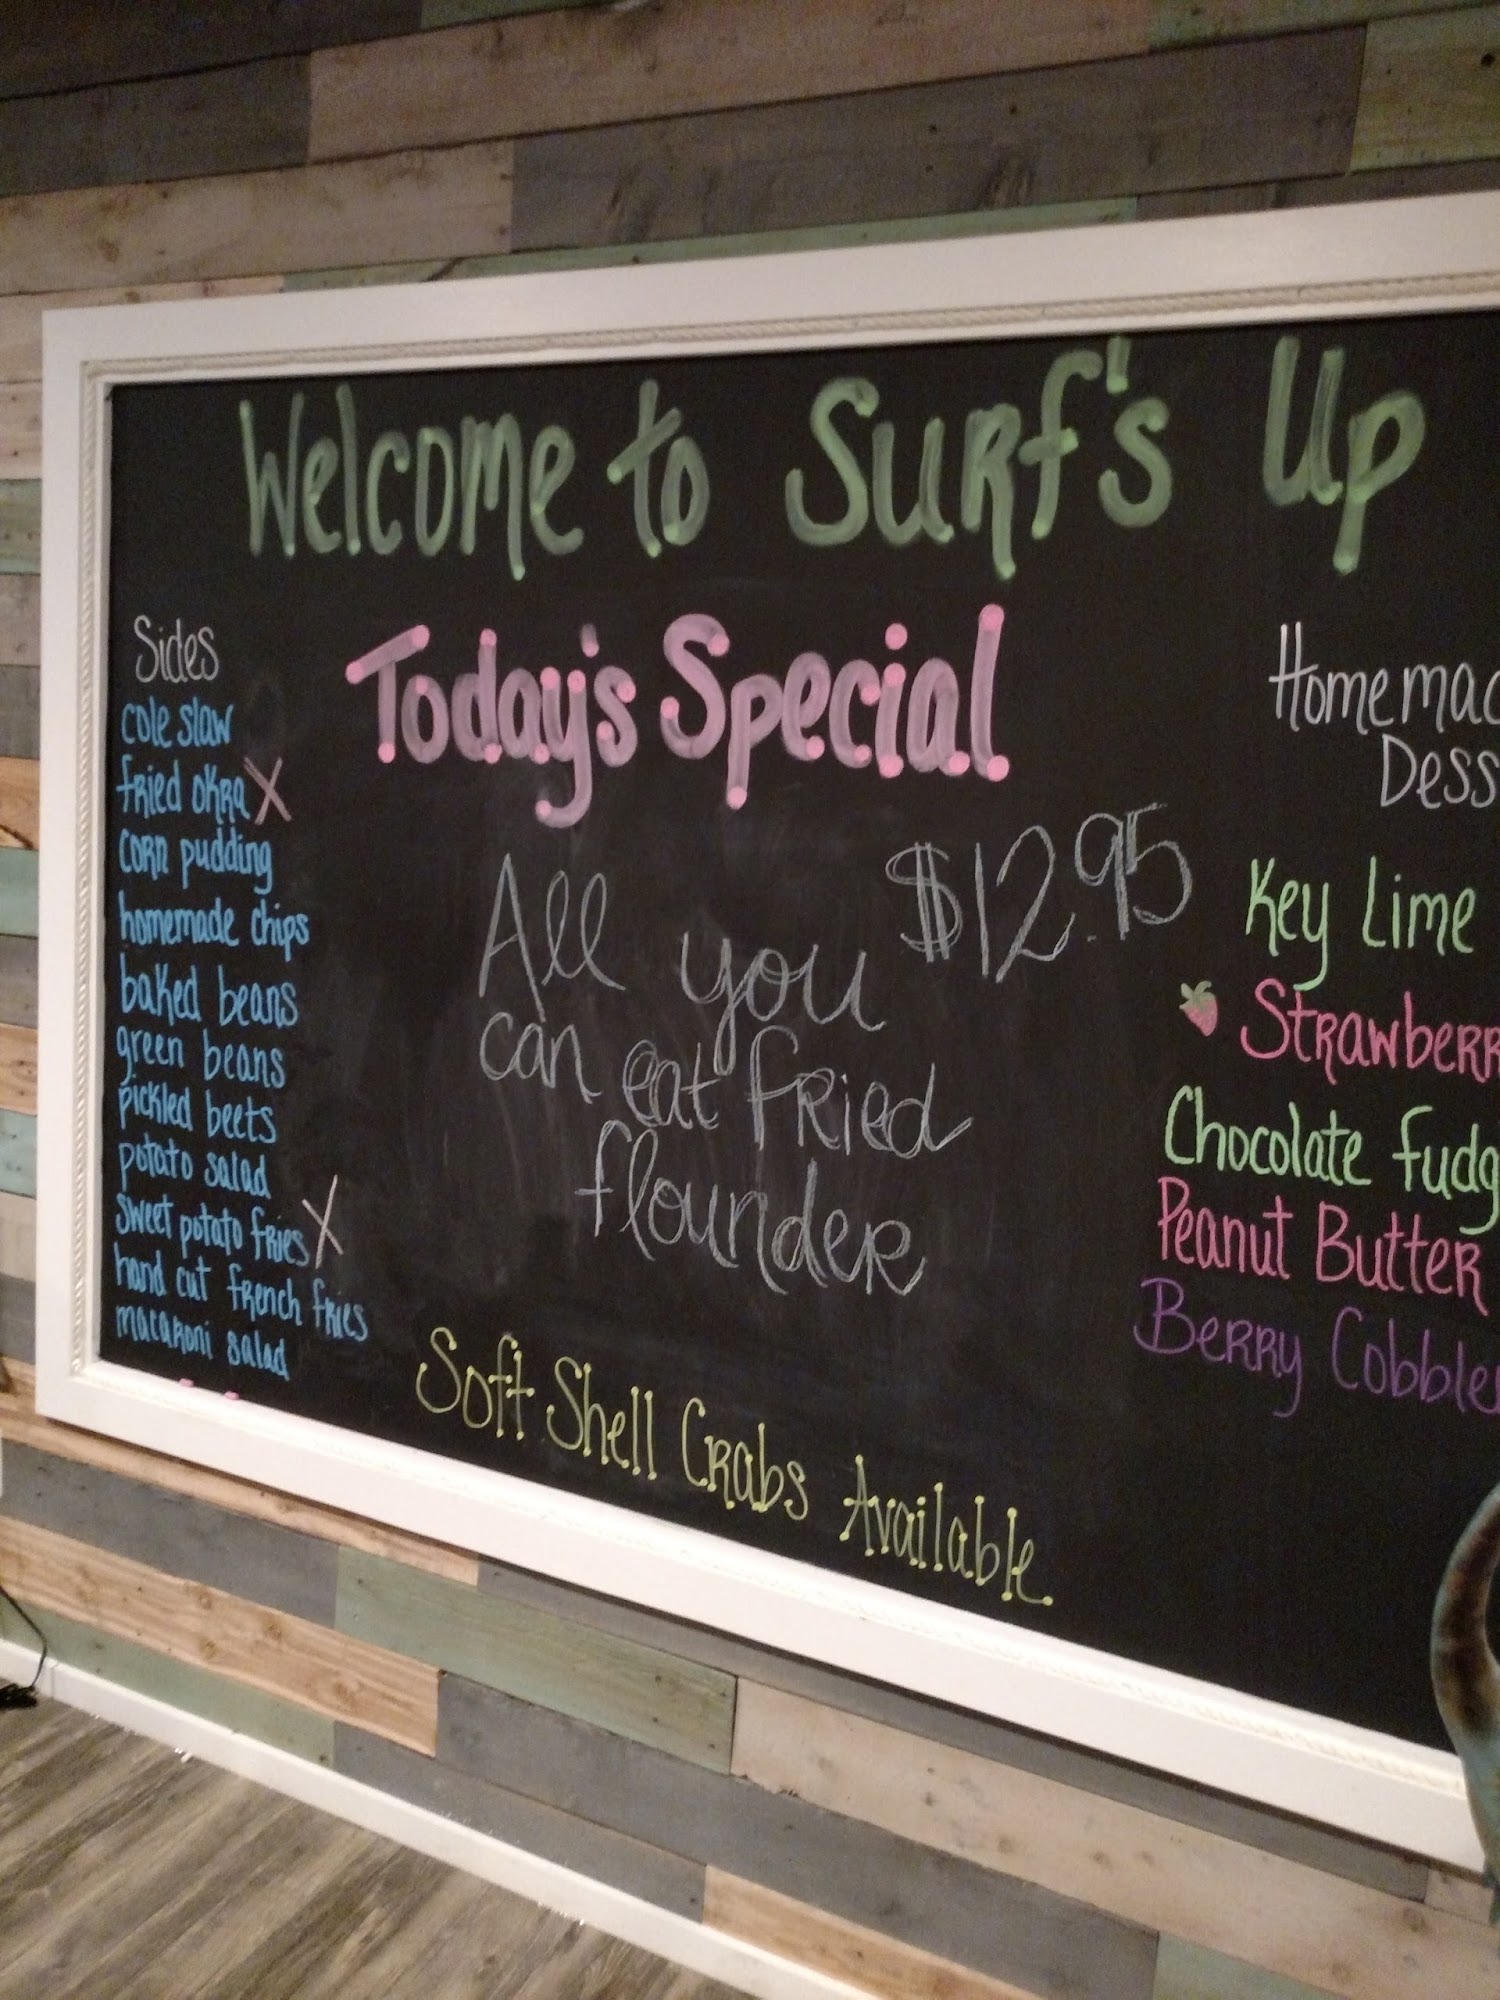 Welcome to Surf's Up
Sides
cole slaw
fried okra X
corn pudding
homemade chips
baked beans
green beans
pickled beets
potato salad
sweet potato fries X
hand cut french fries
macaroni salad
Today's Special
$12.95
All you
can eat fried
flounder
Soft Shell Crabs Available
Homemad
Dess
Key Lime
Strawberr
Chocolate Fudg
Peanut Butter
Berry Cobbler